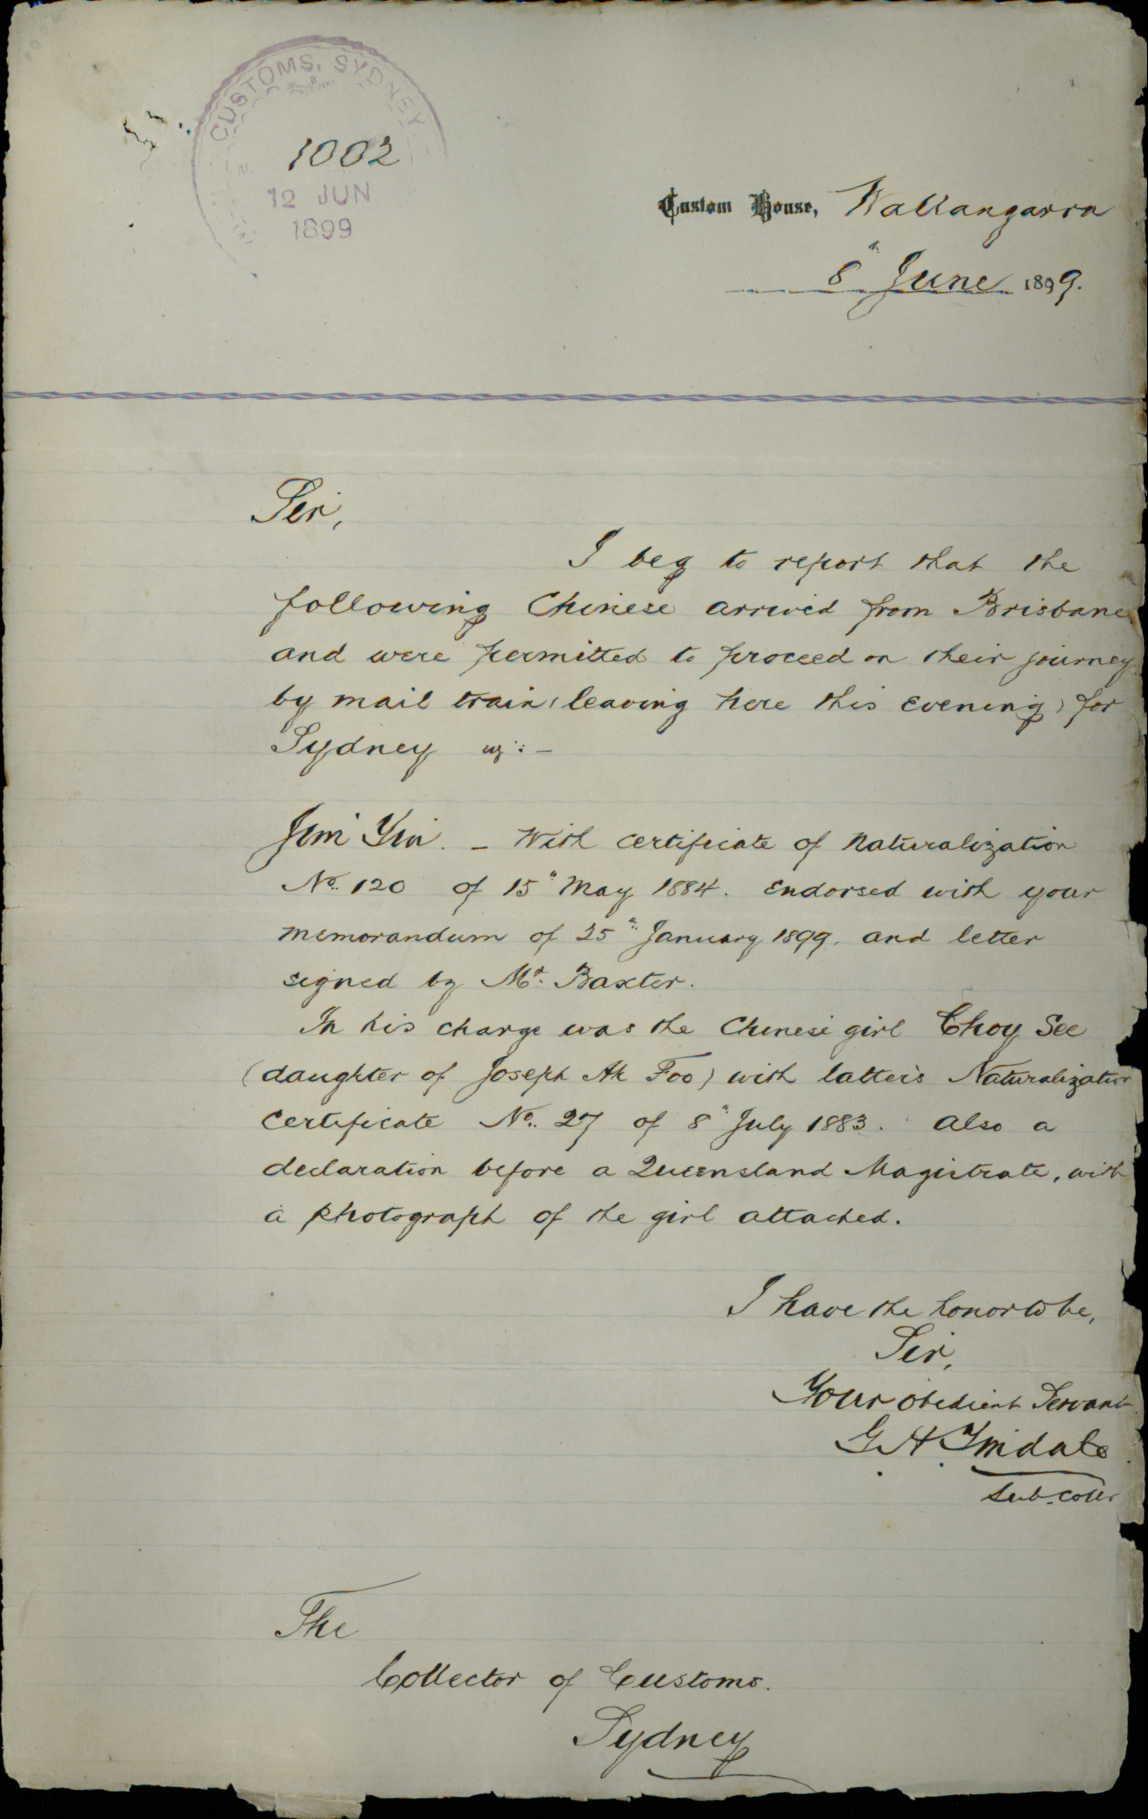 CUSTOMS, SYDNEY
1002
12 JUN
1899
Custom House, Wallangarra
8th June 1899.
Sir,
I beg to report that the
following Chinese arrived from Brisbane
and were permitted to proceed on their journey
by mail train (leaving here this evening) for
Sydney viz:-
Jim Yin. - With certificate of Naturalization
No. 120 of 15th May 1884. Endorsed with your
memorandum of 25th January 1899. and letter
signed by Mr. Baxter.
In his charge was the Chinese girl Choy See
(daughter of Joseph Ah Foo) with latter's Naturalization
Certificate No. 27 of 8th July 1883. Also a
declaration before a Queensland Magistrate, with
a photograph of the girl attached.
I have the honor to be,
Sir,
Your obedient Servant
G. H. Tindale
Sub. Coller
The
Collector of Customs.
Sydney